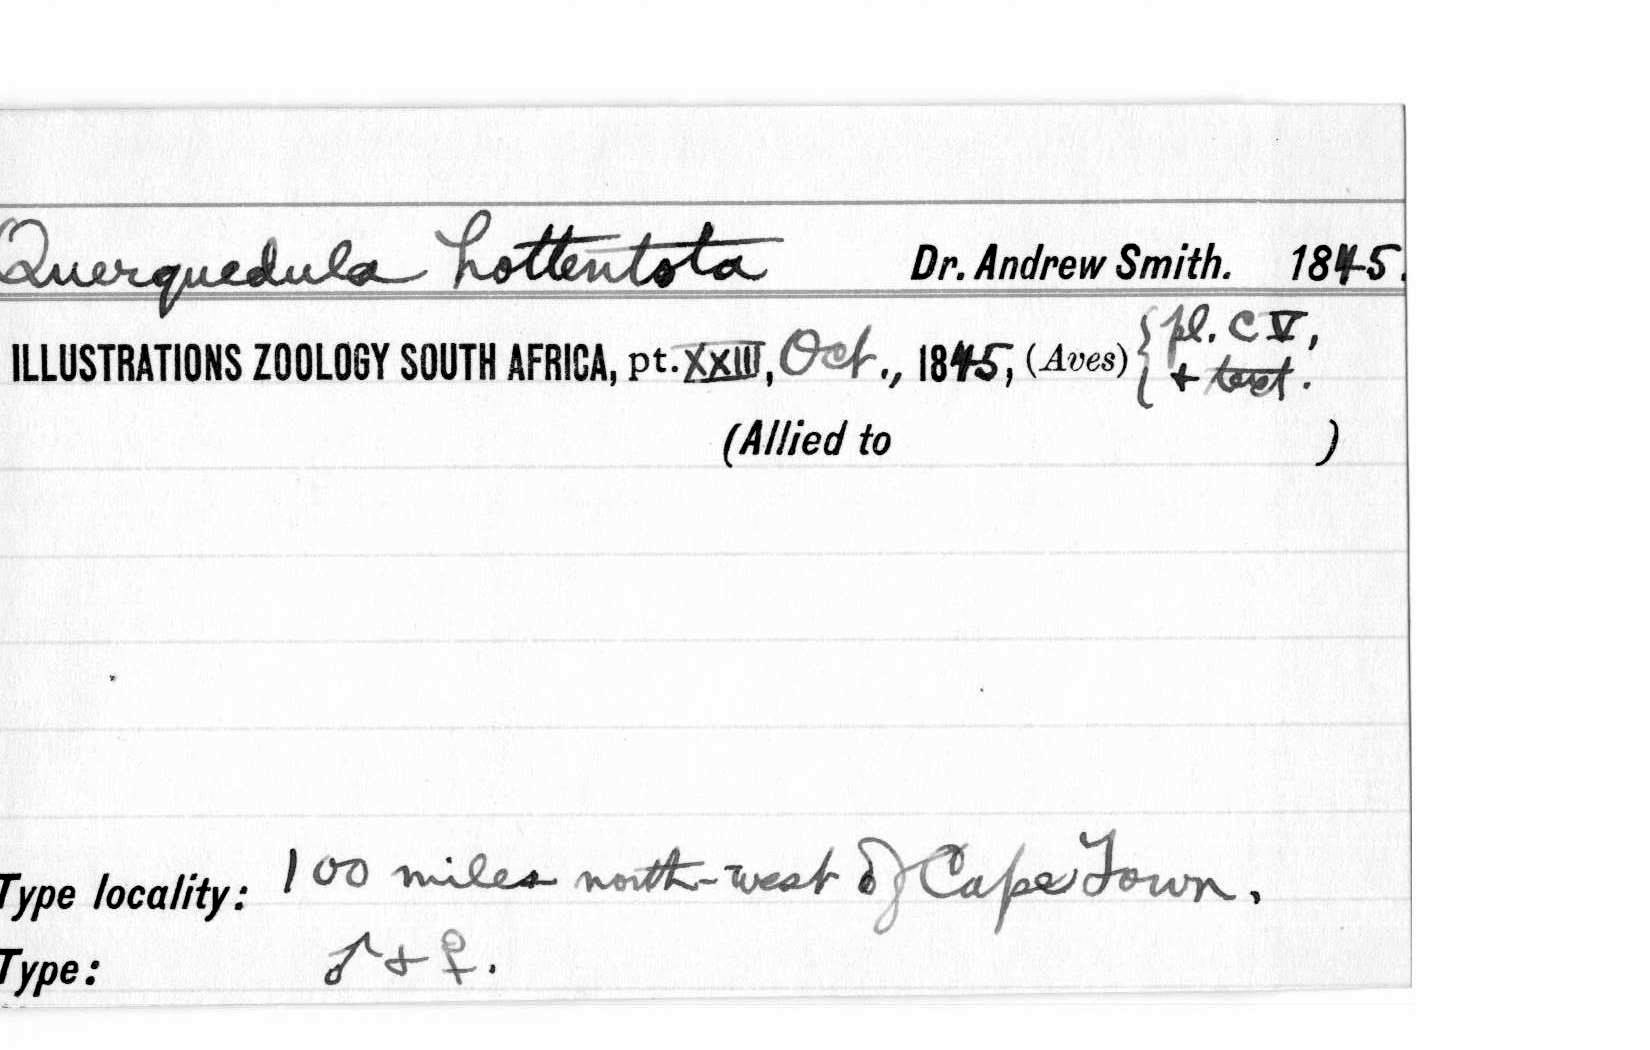 Querquedula hottentota Dr. Andrew Smith. 1845.
ILLUSTRATIONS ZOOLOGY SOUTH AFRICA, pt. XXIII, Oct., 1845, (Aves) { pl. CV,
+ text.
(Allied to )
Type locality: 100 miles north-west of Cape Town.
Type: ♂ + ♀.